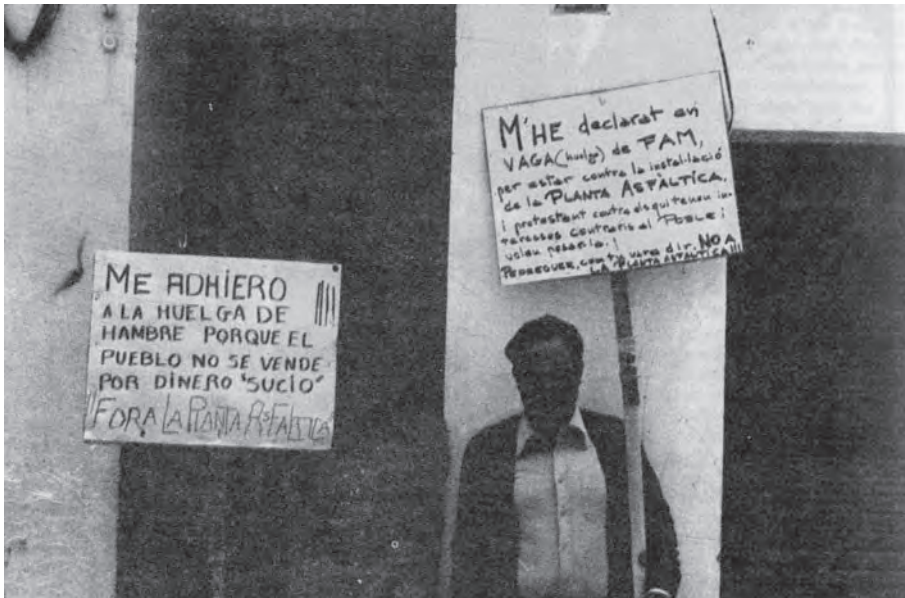 ME ADHIERO
A LA HUELGA DE
HAMBRE PORQUE EL
PUEBLO NO SE VENDE
POR DINERO "SUCIO"
FORA LA PLANTA ASFALTICA
M'HE declarat en
VAGA (huelga) de FAM,
per estar contra la instal·lació
de la PLANTA ASFÀLTICA,
i protestant contra els qui tenen in-
teressos contraris al POBLE i
volen posar-la.!
PEDREGUER, com tu vares dir, NO A
LA PLANTA ASFALTICA!!!